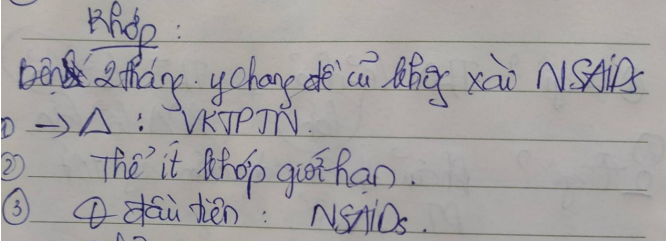 Khớp :
bệnh 2 tháng. y chang đề cũ không xài NSAiDs
① → Δ : VKTPTN.
② Thể ít khớp giới hạn.
③ đầu tiên : NSAiDs.